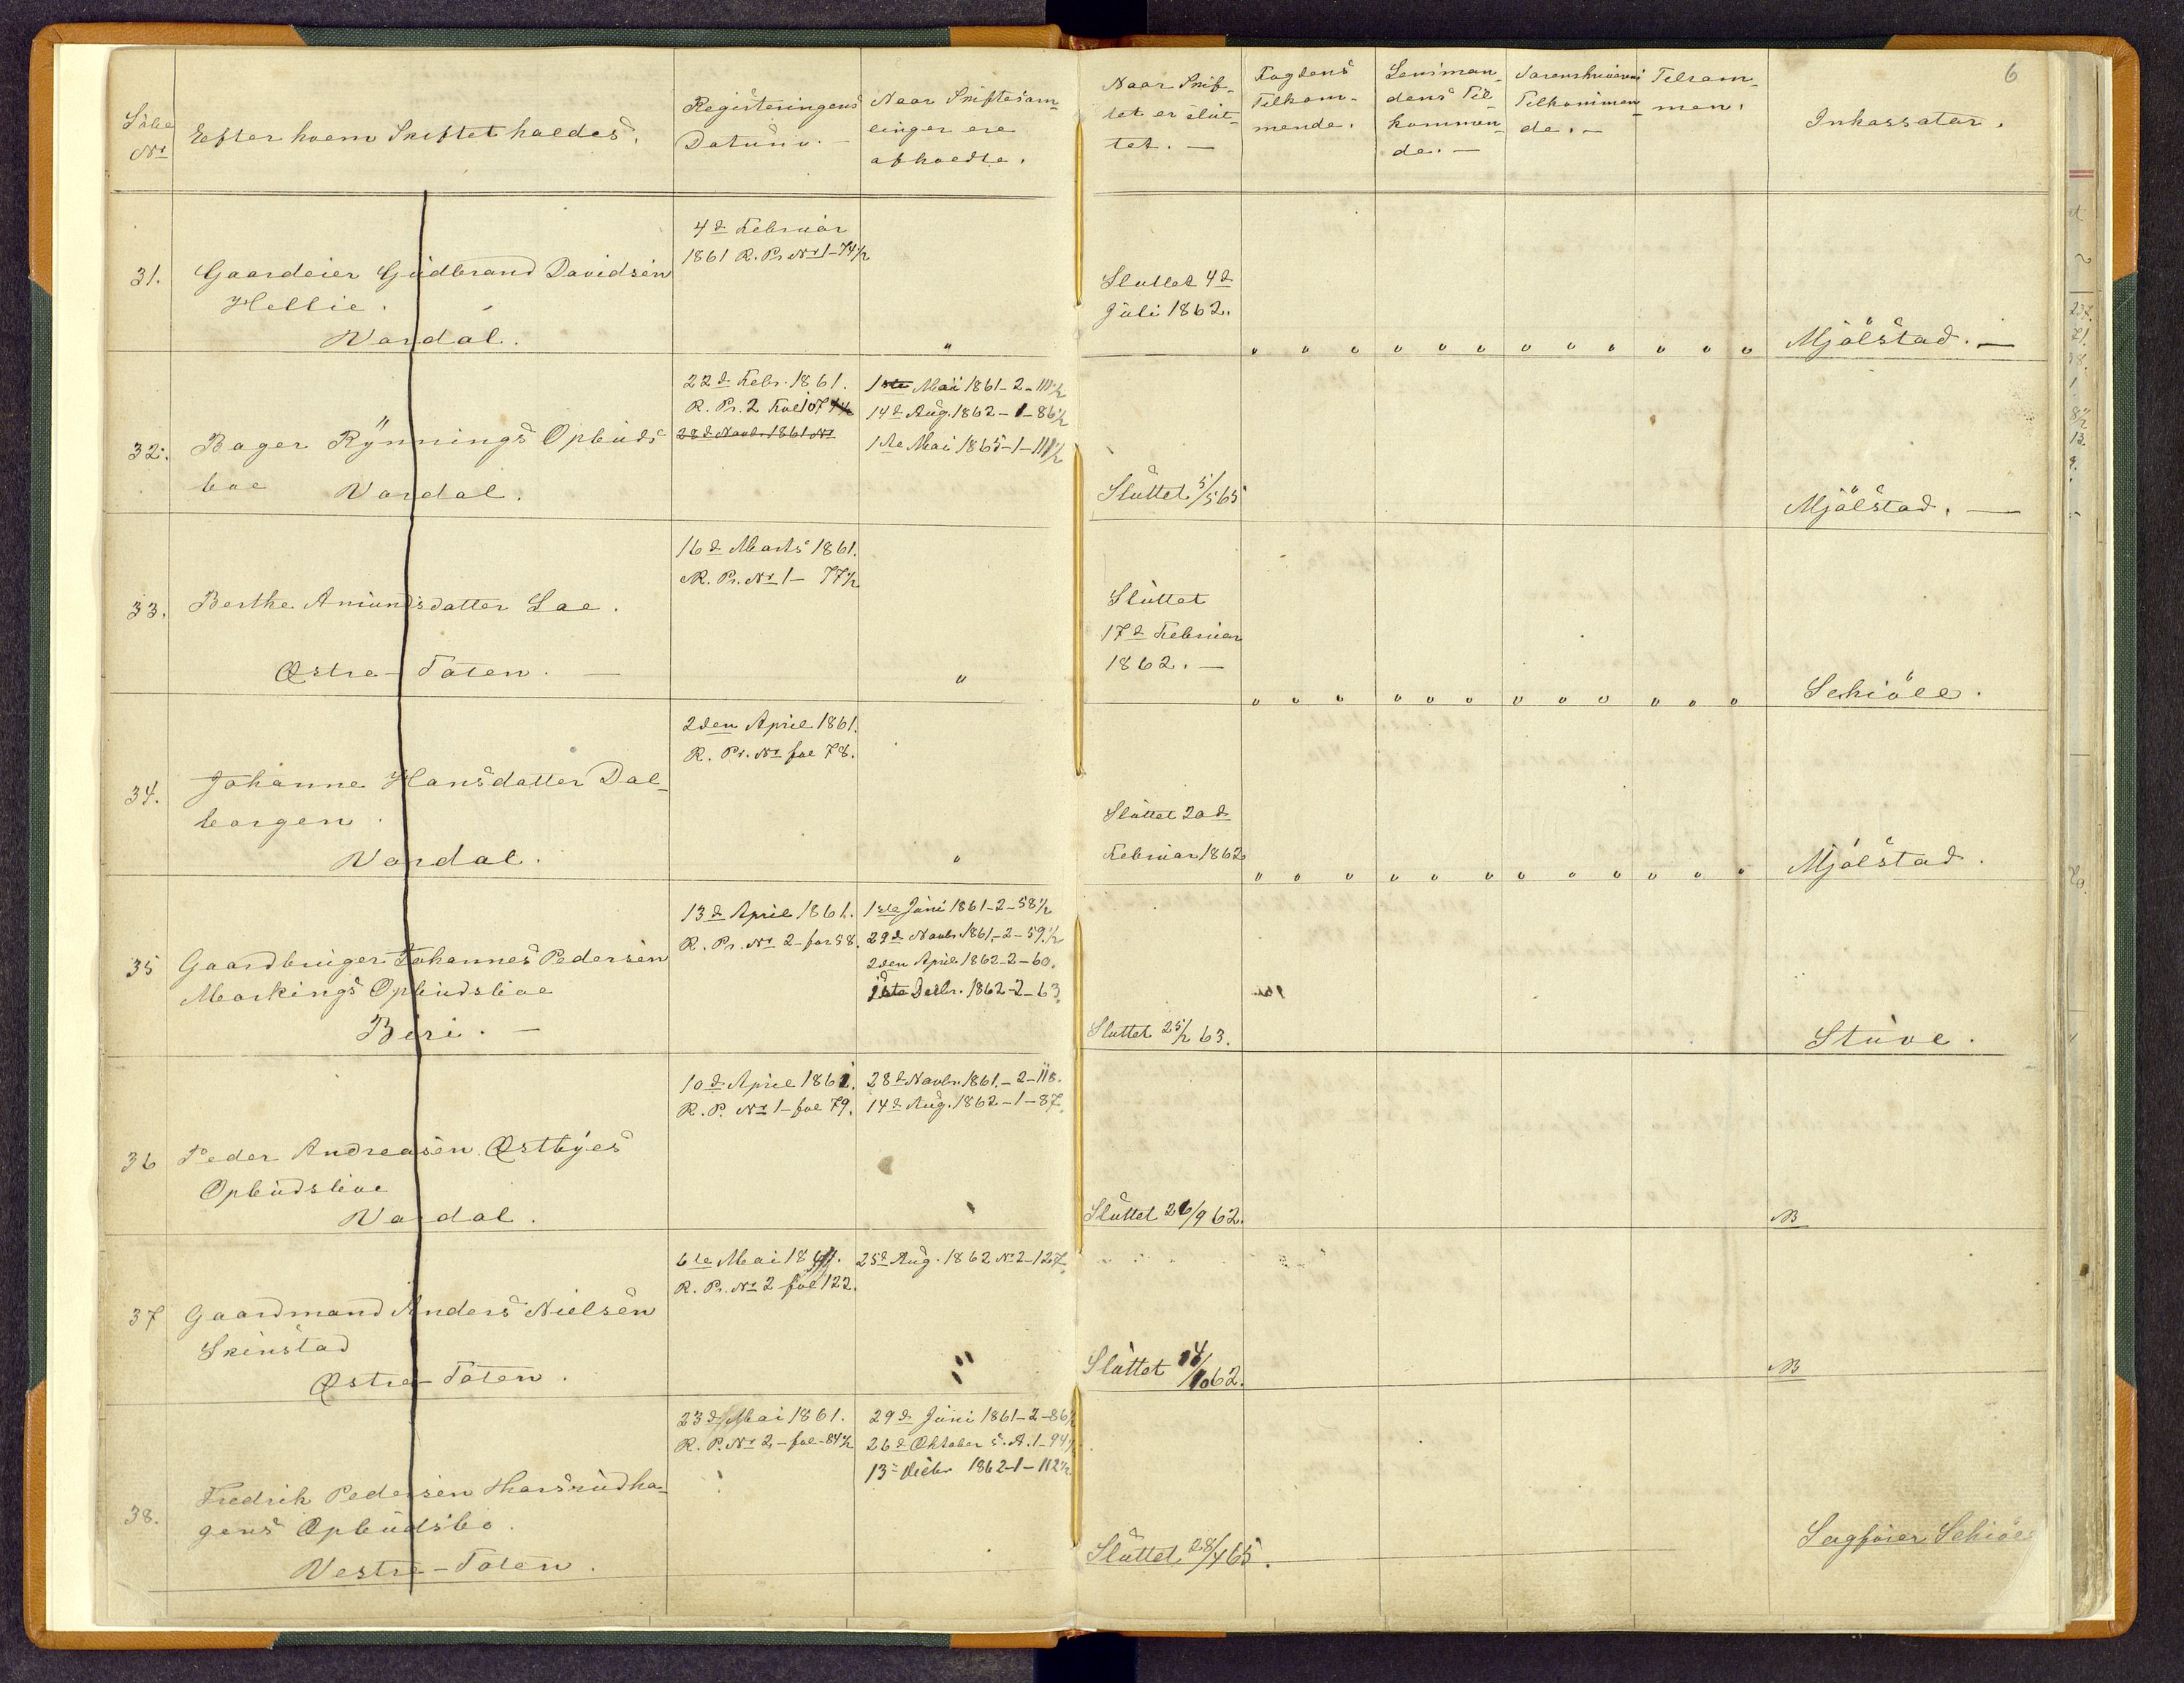 6
Löbe
No
Efter hvem Skiftet holdes.
Registeringens
Datum. —
Naar Skiftesam-
linger ere
afholdte.
Naar Skif-
tet er slut-
tet. —
Fogdens
Tilkom-
mende.
Lensman-
dens Til-
kommen-
de. —
Sorenskriverens
Tilkommen-
de. —
Tilsam-
men.
Inkassator.
31.
Gaardeier Gudbrand Davidsen
Hellie.
Vardal.
4d Februar
1861 R. Pr. No 1-74½
"
Sluttet 4d
Juli 1862.
" " " " " " " " " " " "
Mjölstad. —
32.
Bager Rynnings Opbuds
boe Vardal.
22d Febr. 1861.
R. Pr. 2 Fol 107
28d Novbr. 1861 No
1ste Mai 1861-2-111½
14d Aug. 1862-1-86½
1ste Mai 1865-1-111½
Sluttet 5/5 65
Mjölstad. —
33.
Berthe Amundsdatter Lae.
Østre-Toten. —
16d Marts 1861.
R. Pr. No 1- 77½
"
Sluttet
17d Februar
1862. —
" " " " " " " " " " " "
Schiöll.
34.
Johanne Hansdatter Dal-
borgen.
Vardal.
2den April 1861.
R. Pr. No fol 78.
"
Sluttet 20d
Februar 1862
" " " " " " " " " " " "
Mjölstad.
35
Gaardbruger Johannes Pedersen
Markings Opbudsboe
Biri. —
13d April 1861.
R. Pr. No 2-for 58.
1ste Juni 1861-2-58½
29d Novbr. 1861.-2-59.½
2den April 1862-2-60.
Decbr. 1862-2-63.
Sluttet 25/2 63.
Stuve.
36
Peder Andreasen Østbyes
Opbudsboe
Vardal.
10d April 1861.
R. P. No 1-fol 79.
28d Novbr. 1861.-2-118.
14d Aug. 1862-1-87.
Sluttet 26/9 62.
B
37
Gaardmand Anders Nielsen
Skinstad
Østre-Toten.
6te Mai
R. Pr. No 2 fol 122.
25d Aug. 1862 No 2-127.
"
Sluttet 14/10 62.
B
38.
Fredrik Pedersen Thorsrudha-
gens Opbudsbo.
Vestre-Toten.
23d Mai 1861.
R. P. No 2-fol-84½
29d Juni 1861-2-86½
26d Oktober s. A. 1-94½
13d Decbr 1862-1-112½
Sluttet 28/4 65.
Sagförer Schiöll